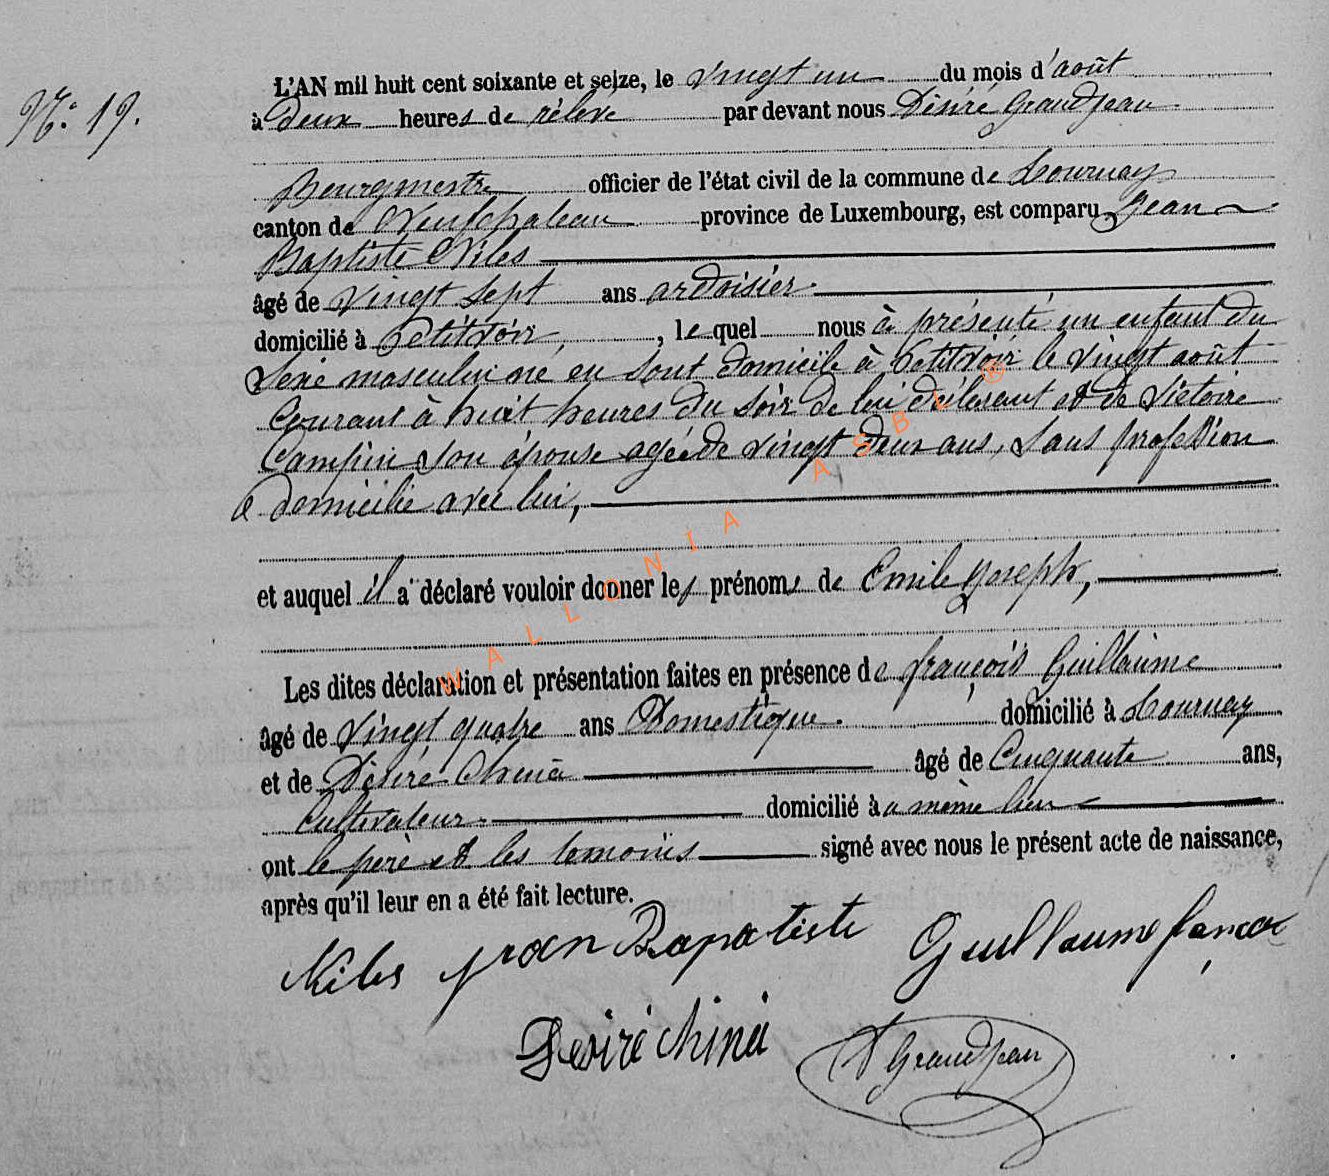 N.° 19.
L'AN mil huit cent soixante et seize, le vingt un du mois d'août
à deux heures de rélevé par devant nous Désiré Grandjean
Bourgmestre officier de l'état civil de la commune de Tournay
canton de Neufchateau province de Luxembourg, est comparu Jean
Baptiste Niles
âgé de vingt sept ans ardoisier
domicilié à Petitvoir, le quel nous à présenté un enfant du
Sexe masculin né en sont domicile à Petitvoir le vingt août
Courant à huit heures du soir de lui déclarant et de Victoire
Campin son épouse agée de vingt deux ans, sans profession
é domicilié avec lui,
et auquel il a déclaré vouloir donner les prénoms de Emile Joseph,
Les dites déclaration et présentation faites en présence de françois Guillaume
âgé de vingt quatre ans Domestique. domicilié à Tournay
et de Désiré Chiná âgé de Cinquante ans,
Cultivateur domicilié à a même lieu
ont le père et les temoins signé avec nous le présent acte de naissance,
après qu'il leur en a été fait lecture.
Niles jean Bapatiste Guillaume
Desiré China D Grandjean
WALLONIA ASBL ®